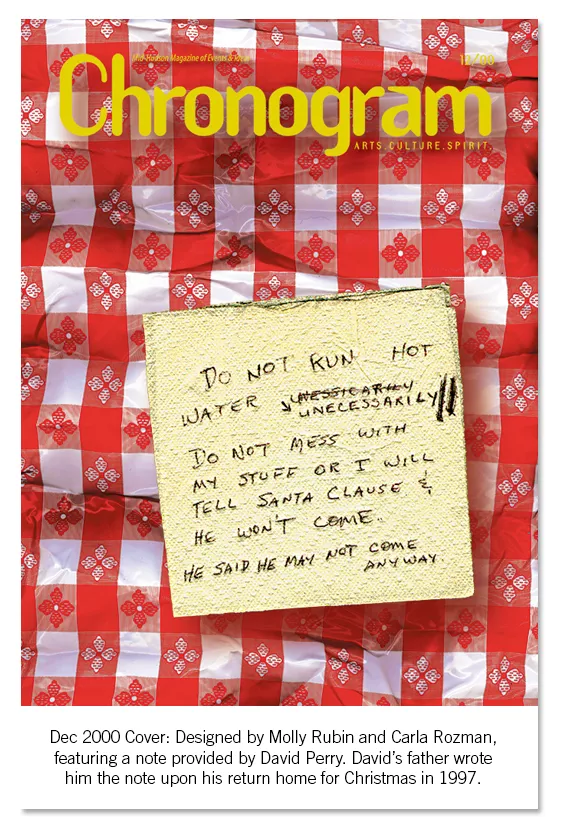 Mid-Hudson Magazine of Events &
12/00
Chronogram
ARTS.CULTURE.SPIRIT.
DO NOT RUN HOT
WATER UNESSICARILY
UNECESSARILY
DO NOT MESS WITH
MY STUFF OR I WILL
TELL SANTA CLAUSE &
HE WON'T COME..
HE SAID HE MAY NOT COME
ANYWAY.
Dec 2000 Cover: Designed by Molly Rubin and Carla Rozman,
featuring a note provided by David Perry. David’s father wrote
him the note upon his return home for Christmas in 1997.